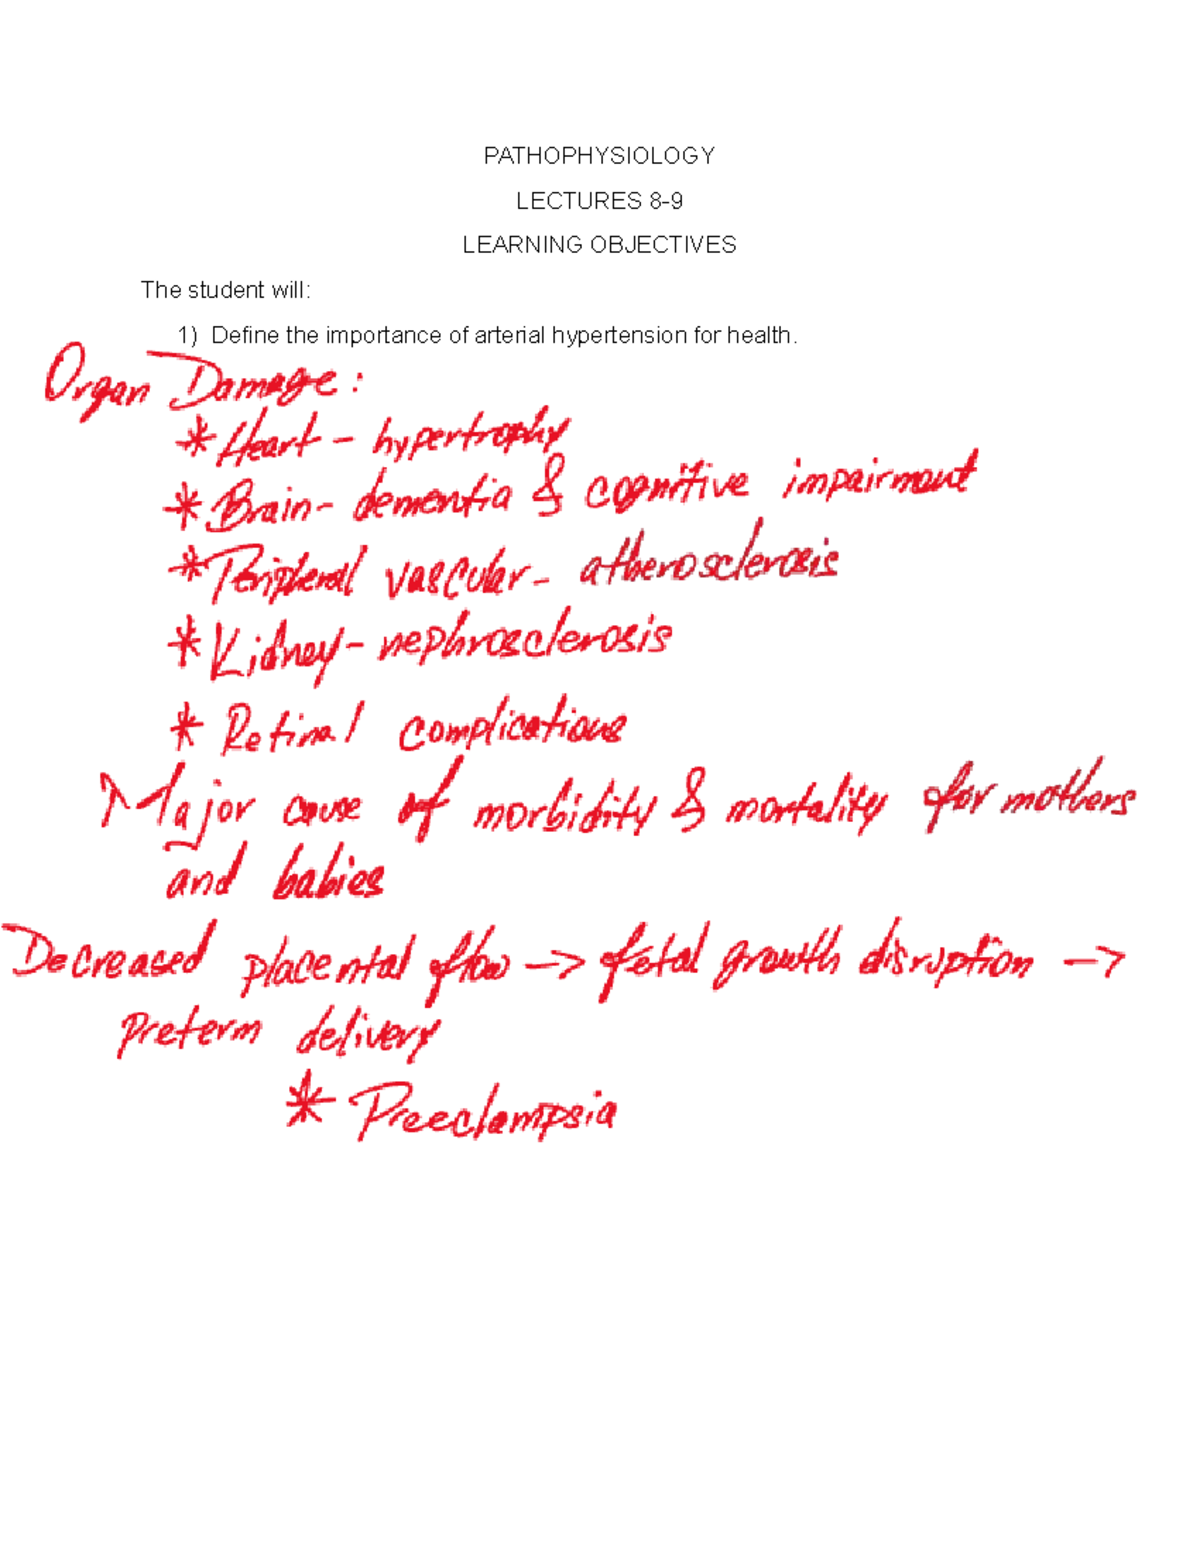 PATHOPHYSIOLOGY
LECTURES 8-9
LEARNING OBJECTIVES
The student will:
1) Define the importance of arterial hypertension for health.
Organ Damage:
* Heart - hypertrophy
* Brain - dementia & cognitive impairment
* Peripheral vascular - atherosclerosis
* Kidney - nephrosclerosis
* Retinal complications
Major cause of morbidity & mortality for mothers
and babies
Decreased placental flow -> fetal growth disruption ->
preterm delivery
* Preeclampsia